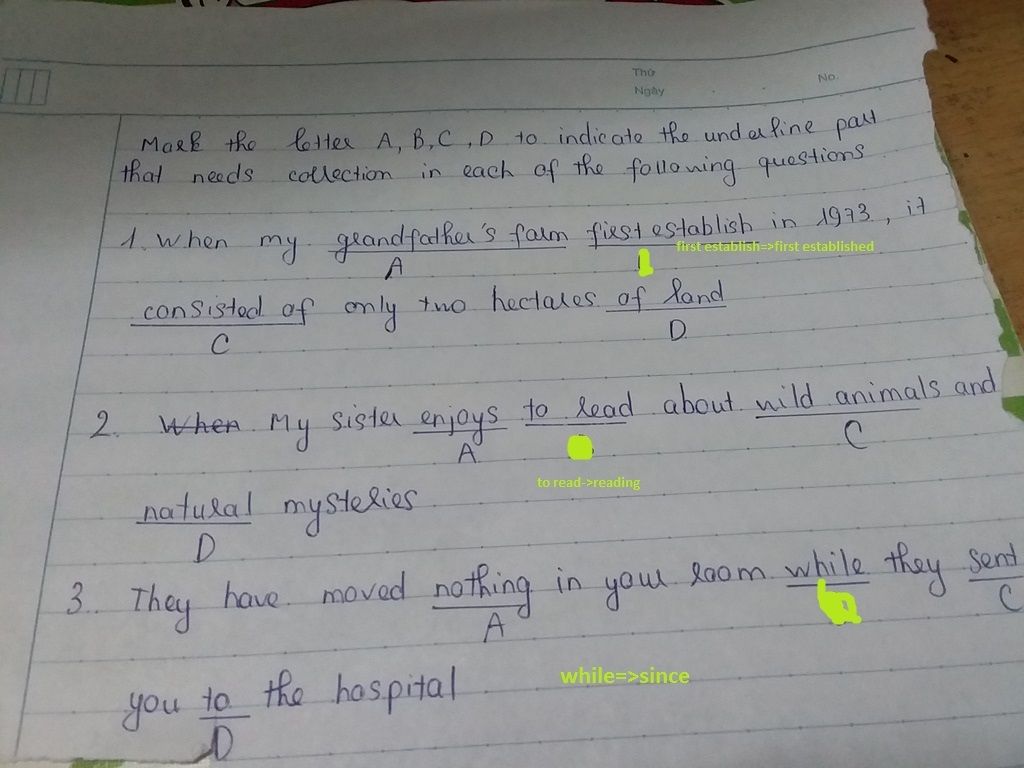 Thứ
Ngày
No.
Mark the letter A, B, C, D to indicate the underline part
that needs correction in each of the following questions
1. When my grandfather's farm first establish in 1973, it
first establish=>first established
A
consisted of only two hectares of land
C D
2. When My sister enjoys to read about wild animals and
A C
to read->reading
natural mysteries
D
3. They have moved nothing in your room while they sent
A C
you to the hospital
while=>since
D